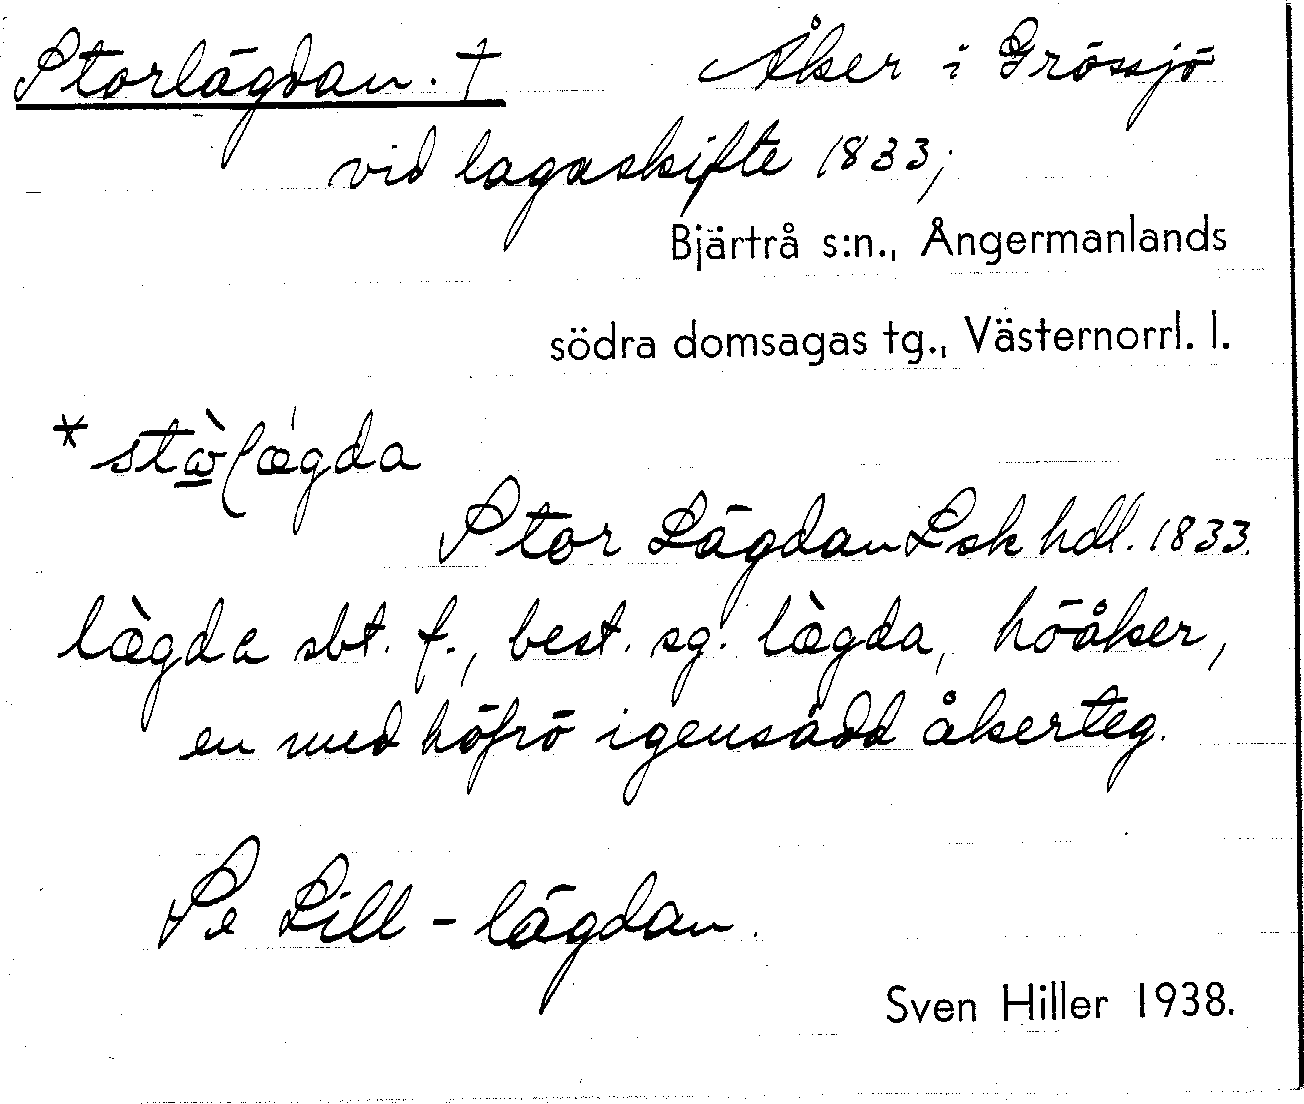 Storlägdan. † Åker i Grössjö
vid lagaskifte 1833;
Bjärtrå s:n., Ångermanlands
södra domsagas tg., Västernorrl. l.
Stor Lägdan Lsk hdl. 1833.
læ̀gda sbt. f., best. sg. læ̀gda, höåker,
en med höfrö igensådd åkerteg.
Se Lill-lägdan.
Sven Hiller 1938.